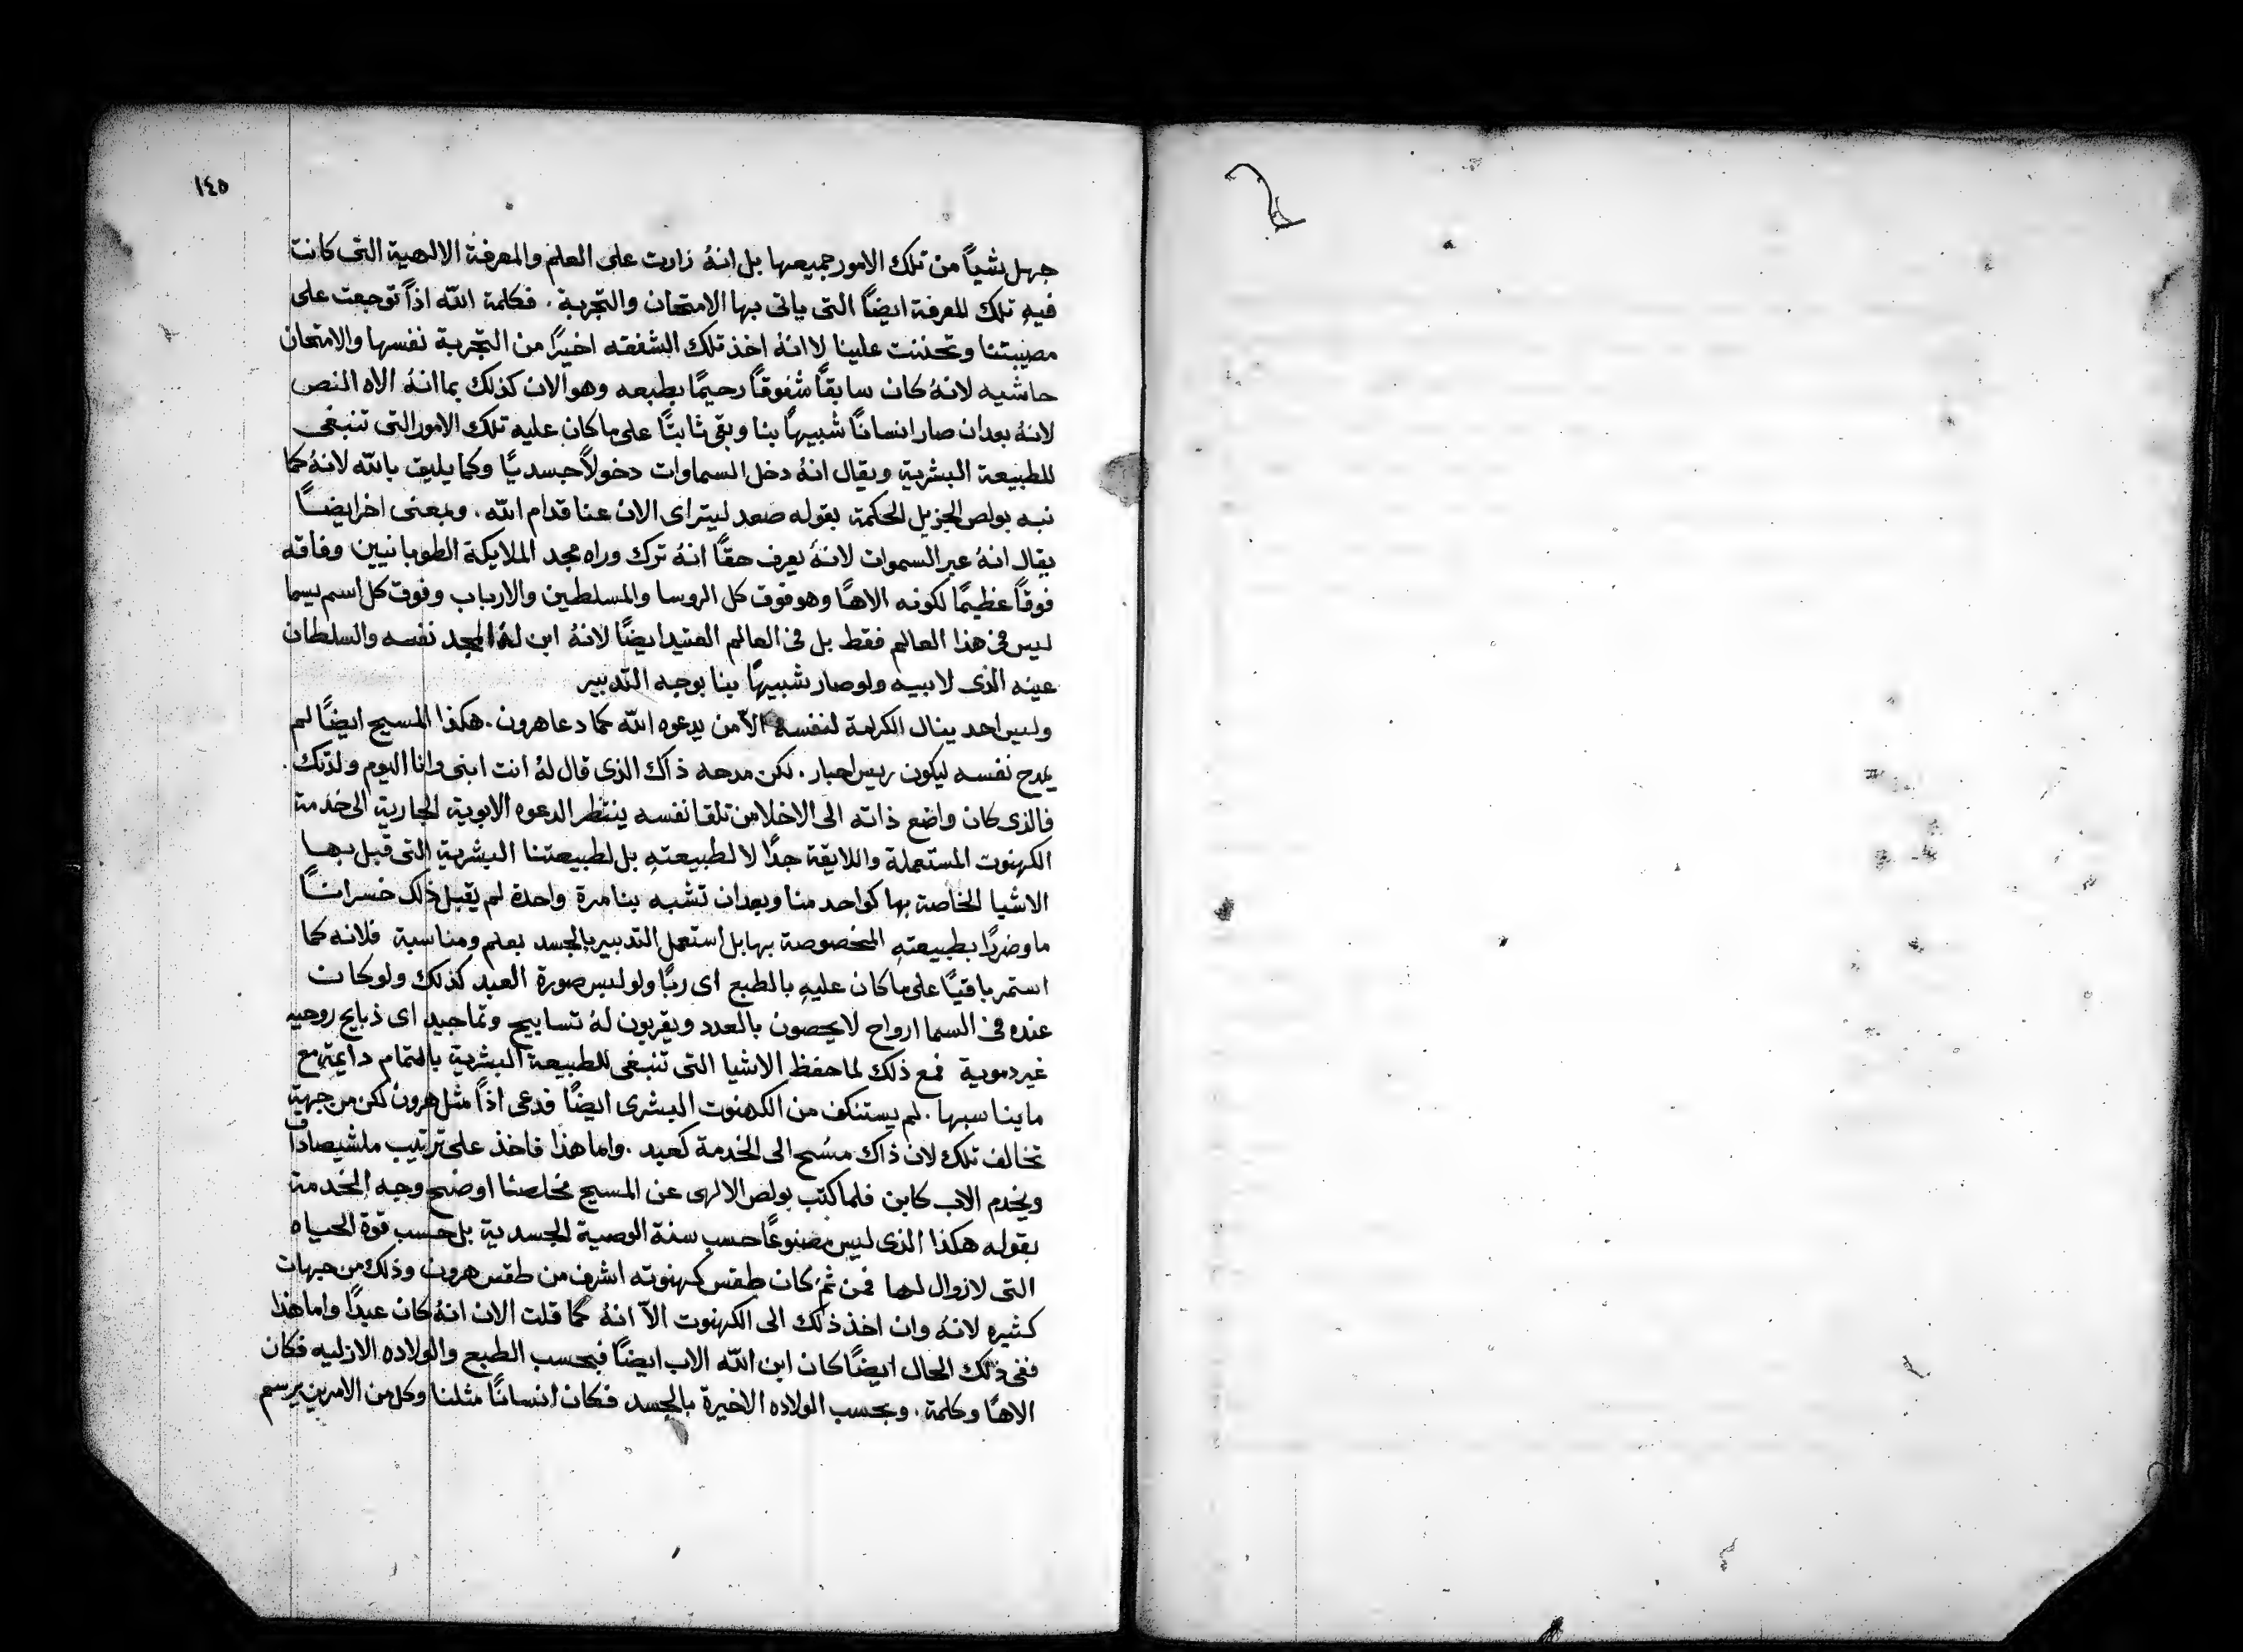 ١٤٥
جهل شياً من تلك الامور جميعها بل انهُ زادت على العلم والمعرفة الالهية التى كانت
فيهِ تلك المعرفة ايضاً التى ياتى بها الامتحان والتجربة . فكلمة الله اذاً توجعت على
مصيبتنا وتحننت علينا لا انهُ اخذ تلك الشفقه اخيراً من التجربة نفسها والامتحان
حاشيه لانهُ كان سابقاً شفوقاً رحيمًا بطبعه وهو الان كذلك بما انهُ الاه النص
لانهُ بعد ان صار انسانًا شبيهًا بنا وبقى ثابتًا على ما كان عليه تلك الامور التى تنبغى
للطبيعة البشرية ويقال انهُ دخل السماوات دخولاً جسديًا وكما يليق بالله لانهُ كما
نبه بولص الجزيل الحكمة بقوله صعد ليتراى الان عنا قدام الله . وبمعنى اخر ايضًا
يقال انهُ عبر السموات لانهُ يعرف حقًا انهُ ترك وراه مجد الملايكة الطوبانيين وفاقه
فوقاً عظيمًا لكونه الاهًا وهو فوق كل الروسا والمسلطين والارباب وفوق كل اسم يسما
ليس فى هذا العالم فقط بل فى العالم العتيد ايضًا لانهُ ابن لهُ المجد نفسه والسلطان
عينه الذى لابيه ولو صار شبيهًا بنا بوجه التدبير
وليس احد ينال الكرامة لنفسه الّا من يدعوه الله كما دعا هرون . هكذا المسيح ايضًا لم
يمدح نفسه ليكون ريس احبار . لكن مدحه ذاك الذى قال لهُ انت ابنى وانا اليوم ولدتك .
فالذى كان واضع ذاته الى الاخلا من تلقا نفسه ينتظر الدعوه الابوية الجارية الى خدمة
الكهنوت المستعملة واللايقة جدًا لا لطبيعتهِ بل لطبيعتنا البشرية التى قبل بها
الاشيا الخاصة بها كواحد منا وبعد ان تشبه بنا مرة واحدة لم يقبل ذلك خسرانًا
ما وضررًا بطبيعتهِ المخصوصة بها بل استعمل التدبير بالجسد بعلم ومناسبة فلانه كما
استمر باقيًا على ما كان عليهِ بالطبع اى ربًا ولو لبس صورة العبد كذلك ولو كان
عنده فى السما ارواح لا يحصون بالعدد ويقربون لهُ تسابيح وتماجيد اى ذبايح روحيه
غير دموية فمع ذلك لما حفظ الاشيا التى تنبغى للطبيعة البشرية بالتمام دايمة مع
ما يناسبها . لم يستنكف من الكهنوت البشرى ايضًا فدعى اذاً مثل هرون لكن من جهة
تخالف تلك لان ذاك مسُح الى الخدمة كعبد . واما هذا فاخذ على ترتيب ملشيصاداق
ويخدم الاب كابن فلما كتب بولص الالهى عن المسيح مخلصنا اوضح وجه الخدمة
بقوله هكذا الذى ليس مصنوعًا حسب سنة الوصية الجسدية بل حسب قوة الحياه
التى لا زوال لها فمن ثم كان طقس كهنوته اشرف من طقس هرون وذلك من جهات
كثيره لانهُ وان اخذ ذلك الى الكهنوت الّا انهُ كما قلت الان انهُ كان عبدًا واما هذا
ففى ذلك الحال ايضًا كان ابن الله الاب ايضًا فبحسب الطبع والولاده الازليه فكان
الاهًا وكلمة . وبحسب الولاده الاخيرة بالجسد فكان انسانًا مثلنا وكل من الامرين يرسم